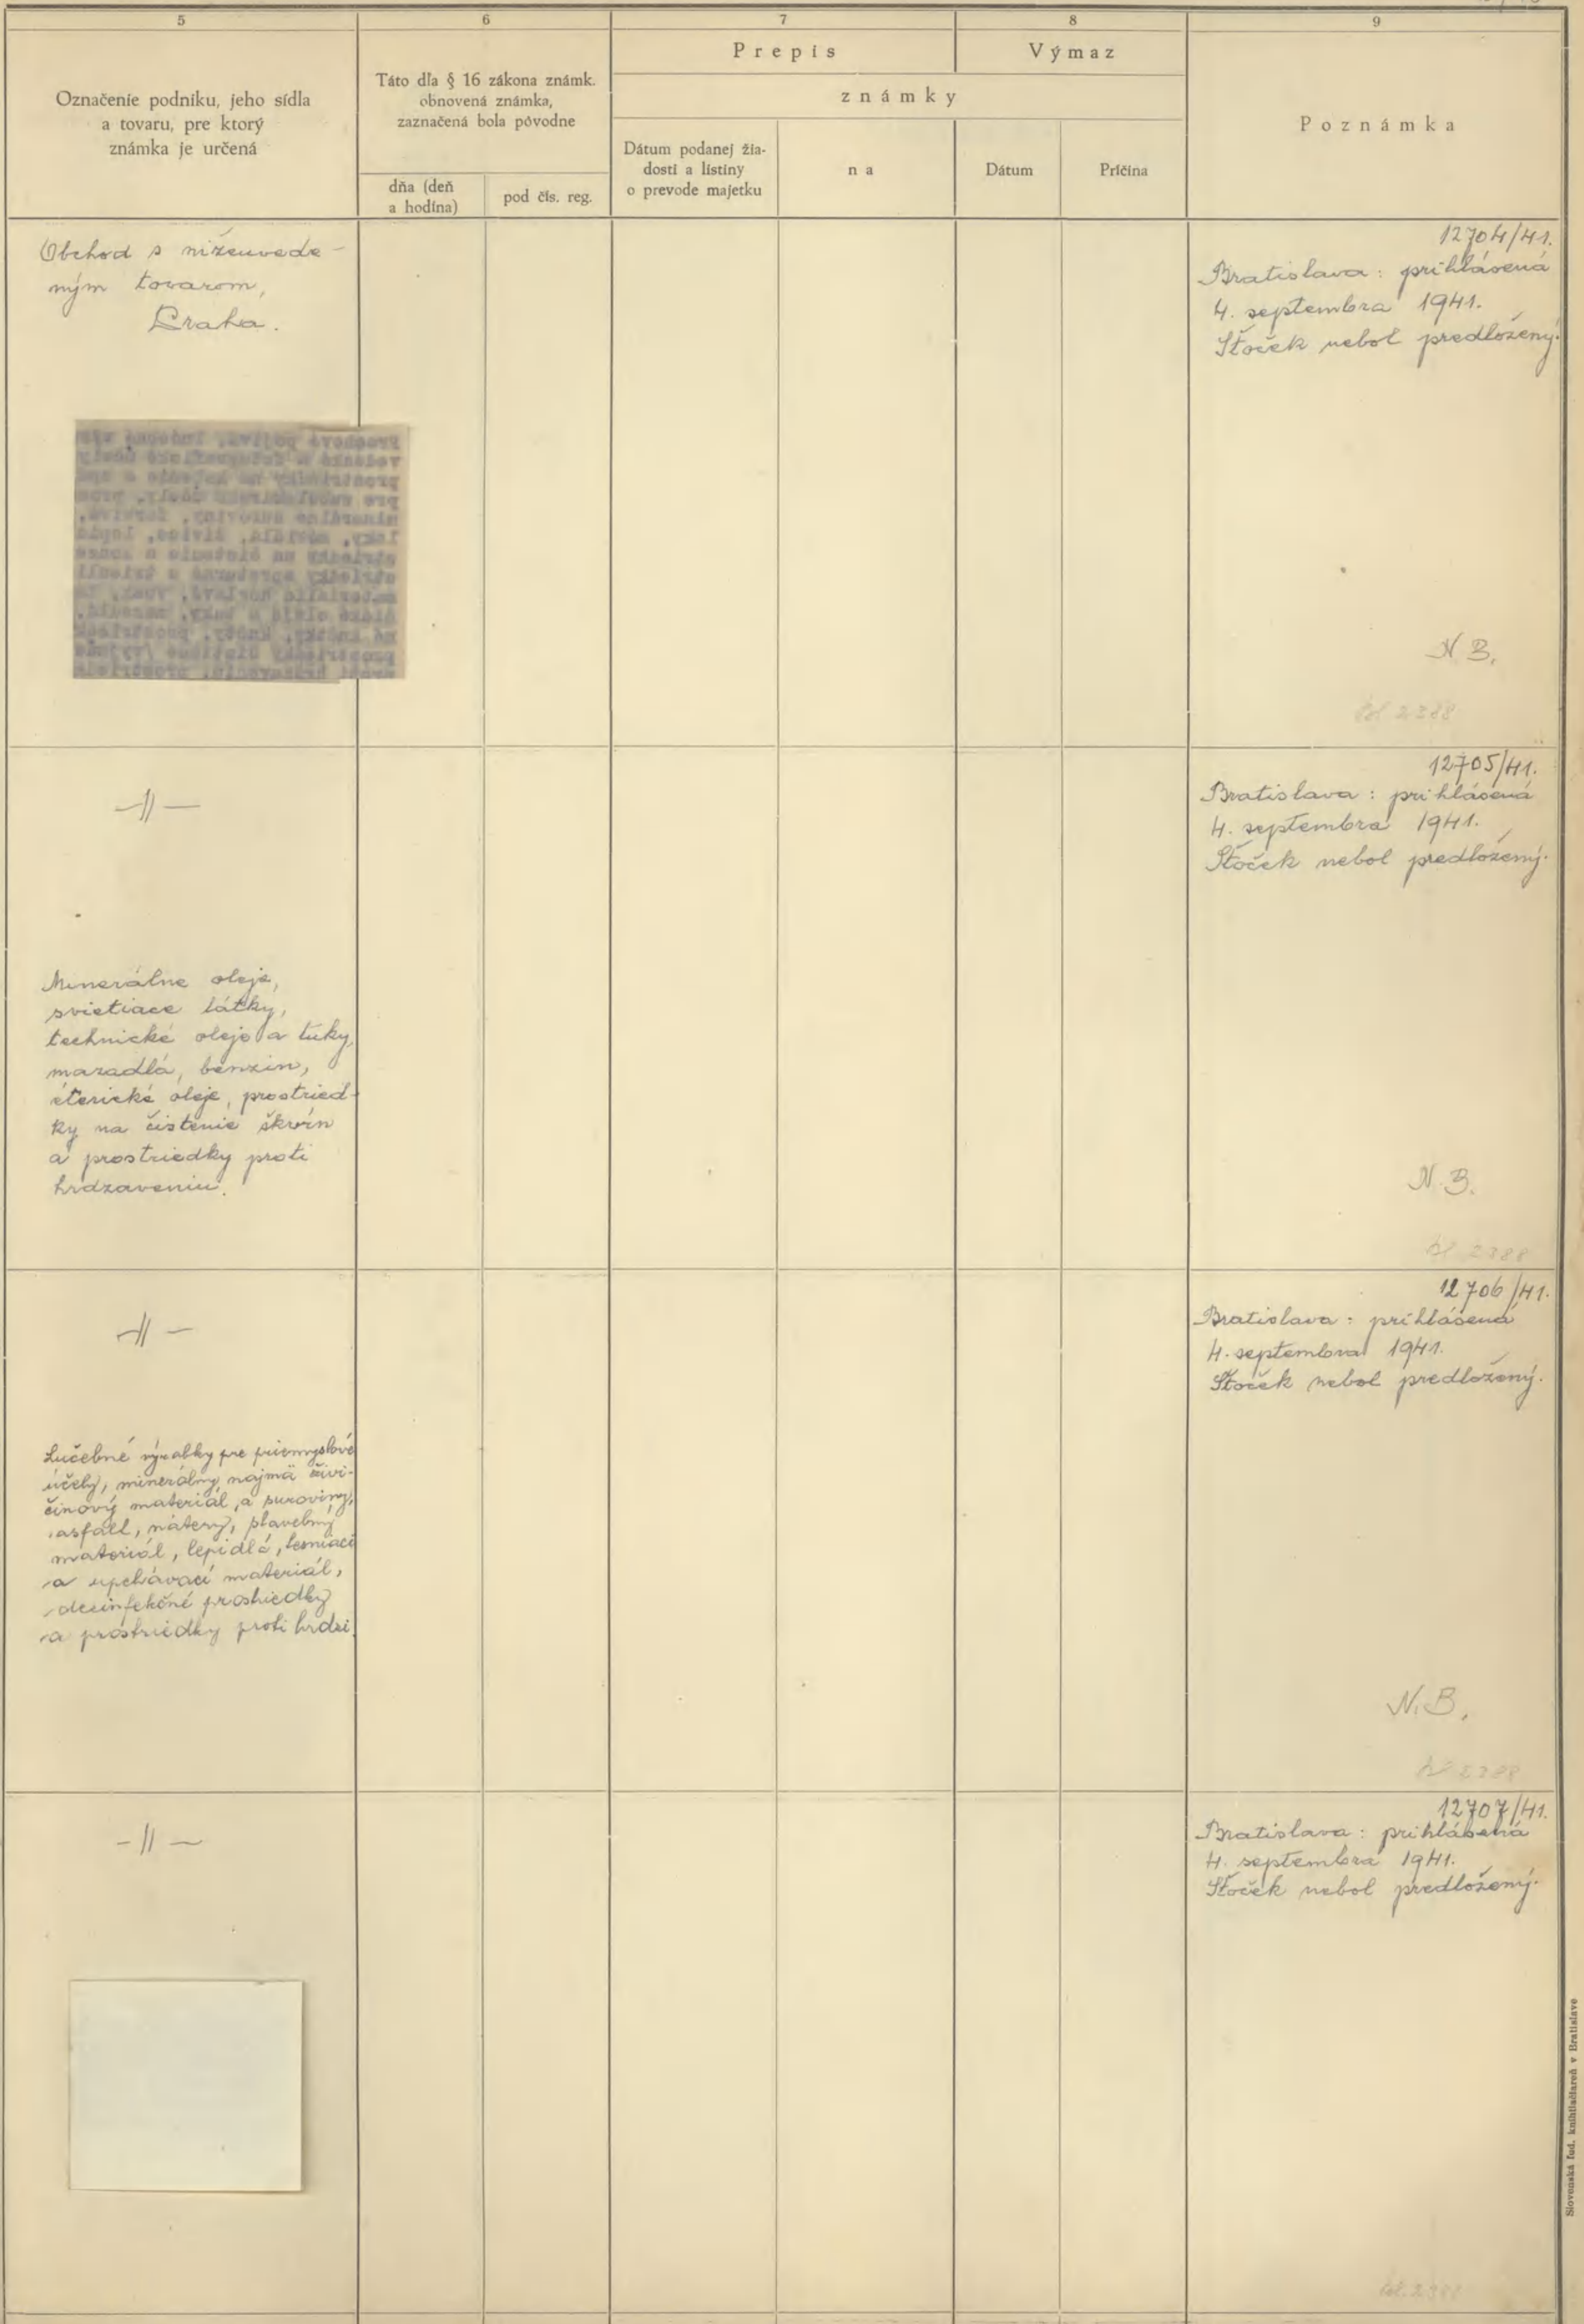 5
6
7
8
9
Označenie podniku, jeho sídla
a tovaru, pre ktorý
známka je určená
Táto dľa § 16 zákona známk.
obnovená známka,
zaznačená bola pôvodne
dňa (deň
a hodina)
pod čís. reg.
Prepis
Výmaz
známky
Dátum podanej žia-
dosti a listiny
o prevode majetku
na
Dátum
Príčina
Poznámka
Obchod s nížeuvede-
ným tovarom,
Praha.
12704/41.
Bratislava: prihlásená
4. septembra 1941.
Štoček nebol predložený.
N.B.
2388
-||-
Minerálne oleje,
svietiace látky,
technické oleje a tuky,
mazadlá, benzin,
éterické oleje, prostried-
ky na čistenie škvŕn
a prostriedky proti
hrdzaveniu.
12705/41.
Bratislava: prihlásená
4. septembra 1941.
Štoček nebol predložený.
N.B.
2388
-||-
Lučebné výrobky pre priemyslové
účely, minerálny, najmä živi-
činový materiál, a suroviny,
asfalt, nátery, stavebný
materiál, lepidlá, tesniaci
a upchávací materiál,
dezinfekčné prostriedky
a prostriedky proti hrdzi.
12706/41.
Bratislava: prihlásená
4. septembra 1941.
Štoček nebol predložený.
N.B.
2388
-||-
12707/41.
Bratislava: prihlásená
4. septembra 1941.
Štoček nebol predložený.
2388
Slovenská ľud. kníhtlačiareň v Bratislave